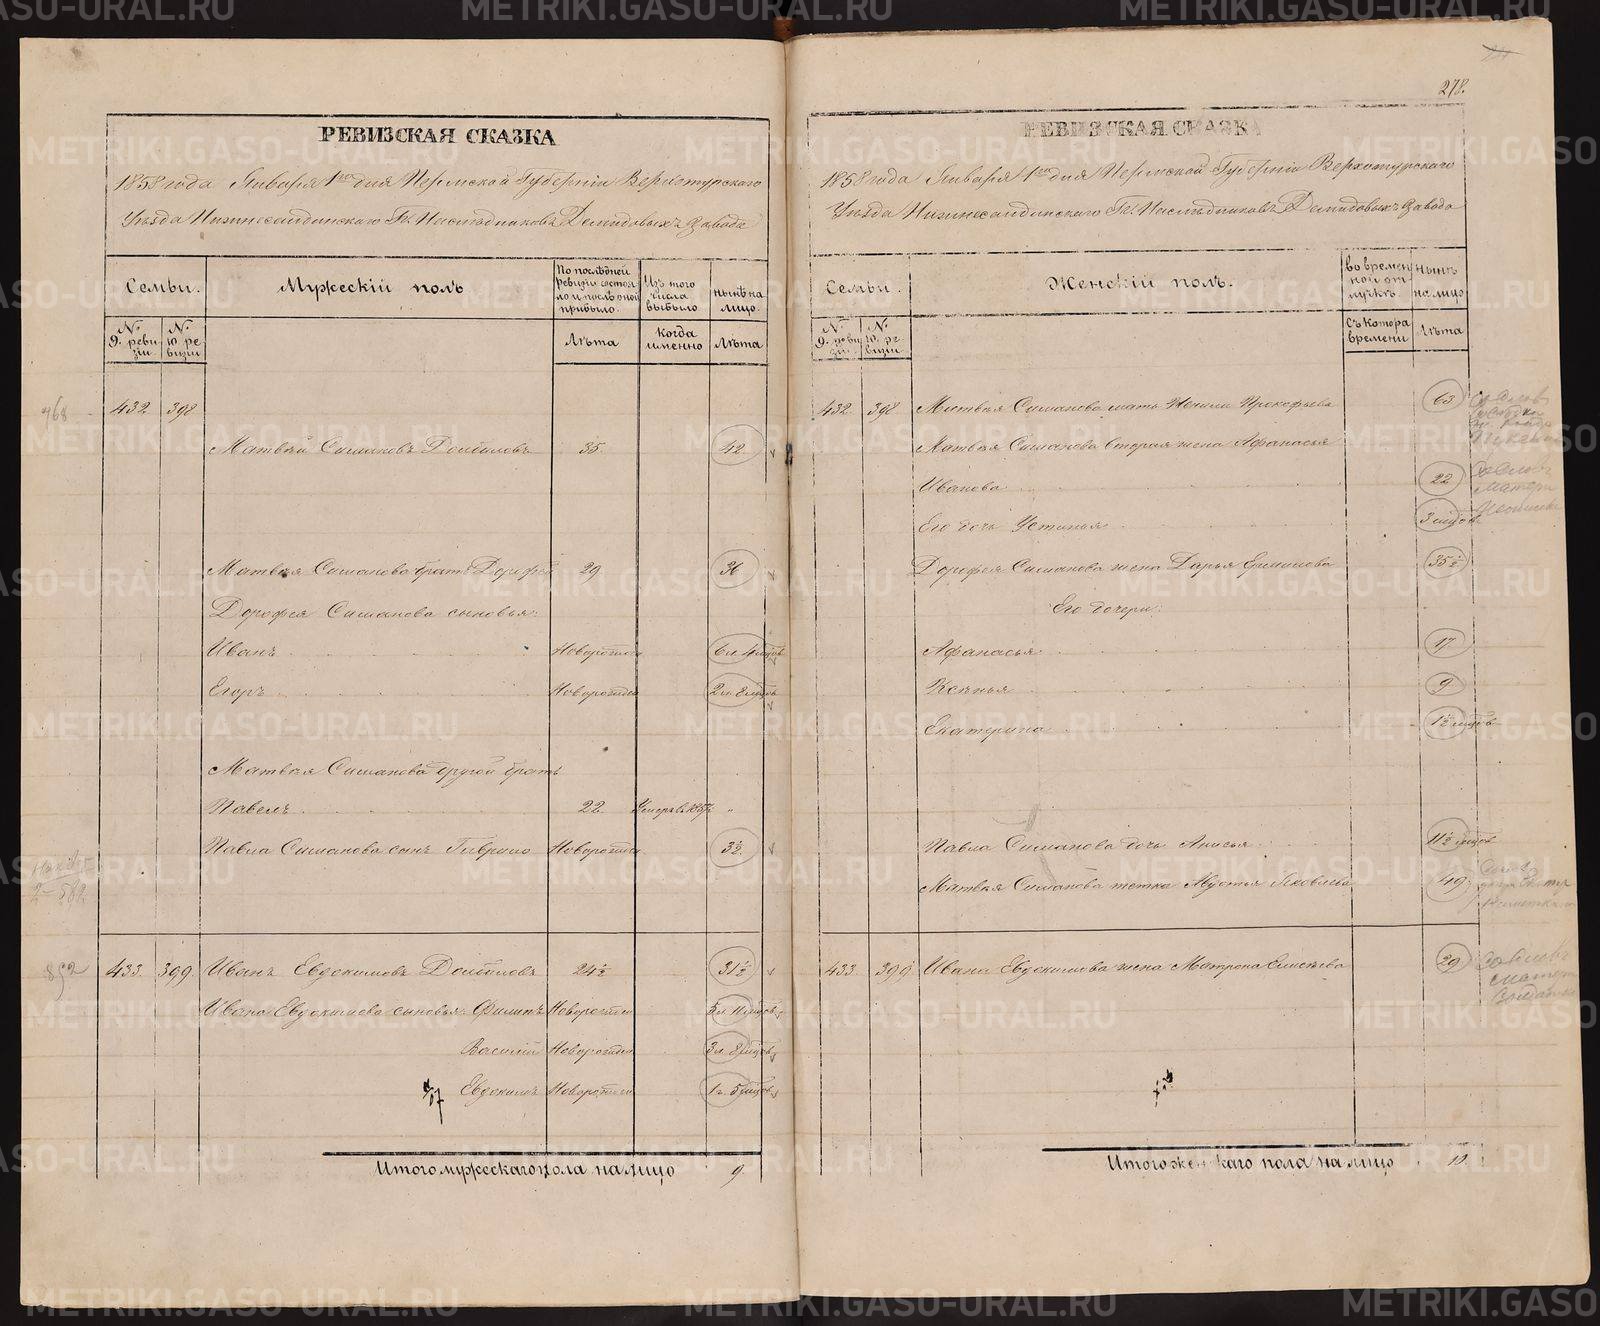 278.
РЕВИЗСКАЯ СКАЗКА
1858 года Января 1го дня Пермской Губерніи Верхотурскаго
Уѣзда Нижнесалдинскаго Гг. Наслѣдниковъ Демидовыхъ Завода
Семьи.
Мужескій полъ
По послѣдней ревизіи состояло и послѣ оной прибыло.
Изъ того числа выбыло
нынѣ на лицо.
№ 9. ревизіи
№ 10 ревизіи
Лѣта
когда именно
Лѣта
432 398
Матвѣй Симановъ 35. 42
Матвѣя Симанова братъ Дорофей 29 36
Дорофея Симанова сыновья:
Иванъ Новорожден 6 л. 4 мцов
Егоръ Новорожден 2 л. 8 мцов
Матвѣя Симанова другой братъ
Павелъ 22. Умеръ въ „
Павла Симанова сынъ Гаврило Новорожден 3½
433. 399. Иванъ Евдокимовъ 24½ 31½
Ивана Евдокимова сыновья: Филипъ Новорожден 5 л. 11 мцов
Василій Новорожден 3 л. 8 мцов
Евдокимъ Новорожден 1 г. 5 мцов
Итого мужескаго пола на лицо 9.
РЕВИЗСКАЯ СКАЗКА
1858 года Января 1го дня Пермской Губерніи Верхотурскаго
Уѣзда Нижнесалдинскаго Гг. Наслѣдниковъ Демидовыхъ Завода
Семьи.
Женскій полъ.
во временной отлучкѣ.
нынѣ на лицо
№ 9. ревизіи
№ 10. ревизіи
Съ котора времени
Лѣта
432 398 Матвѣя Симанова мать Прокофьева 63
Матвѣя Симанова вторая жена Афанасья
Иванова 22
Его дочь Устинья 3 мцов
Дорофея Симанова жена Дарья 35½
Его дочери:
Афанасья 17
Ксенья 9
Екатерина 1½ мцов
Павла Симанова дочь Анисья 11½ мцов
Матвѣя Симанова тетка Яковлева 49
433. 399 Ивана Евдокимова жена Матрона 29
Итого женскаго пола на лицо 10.
METRIKI.GASO-URAL.RU